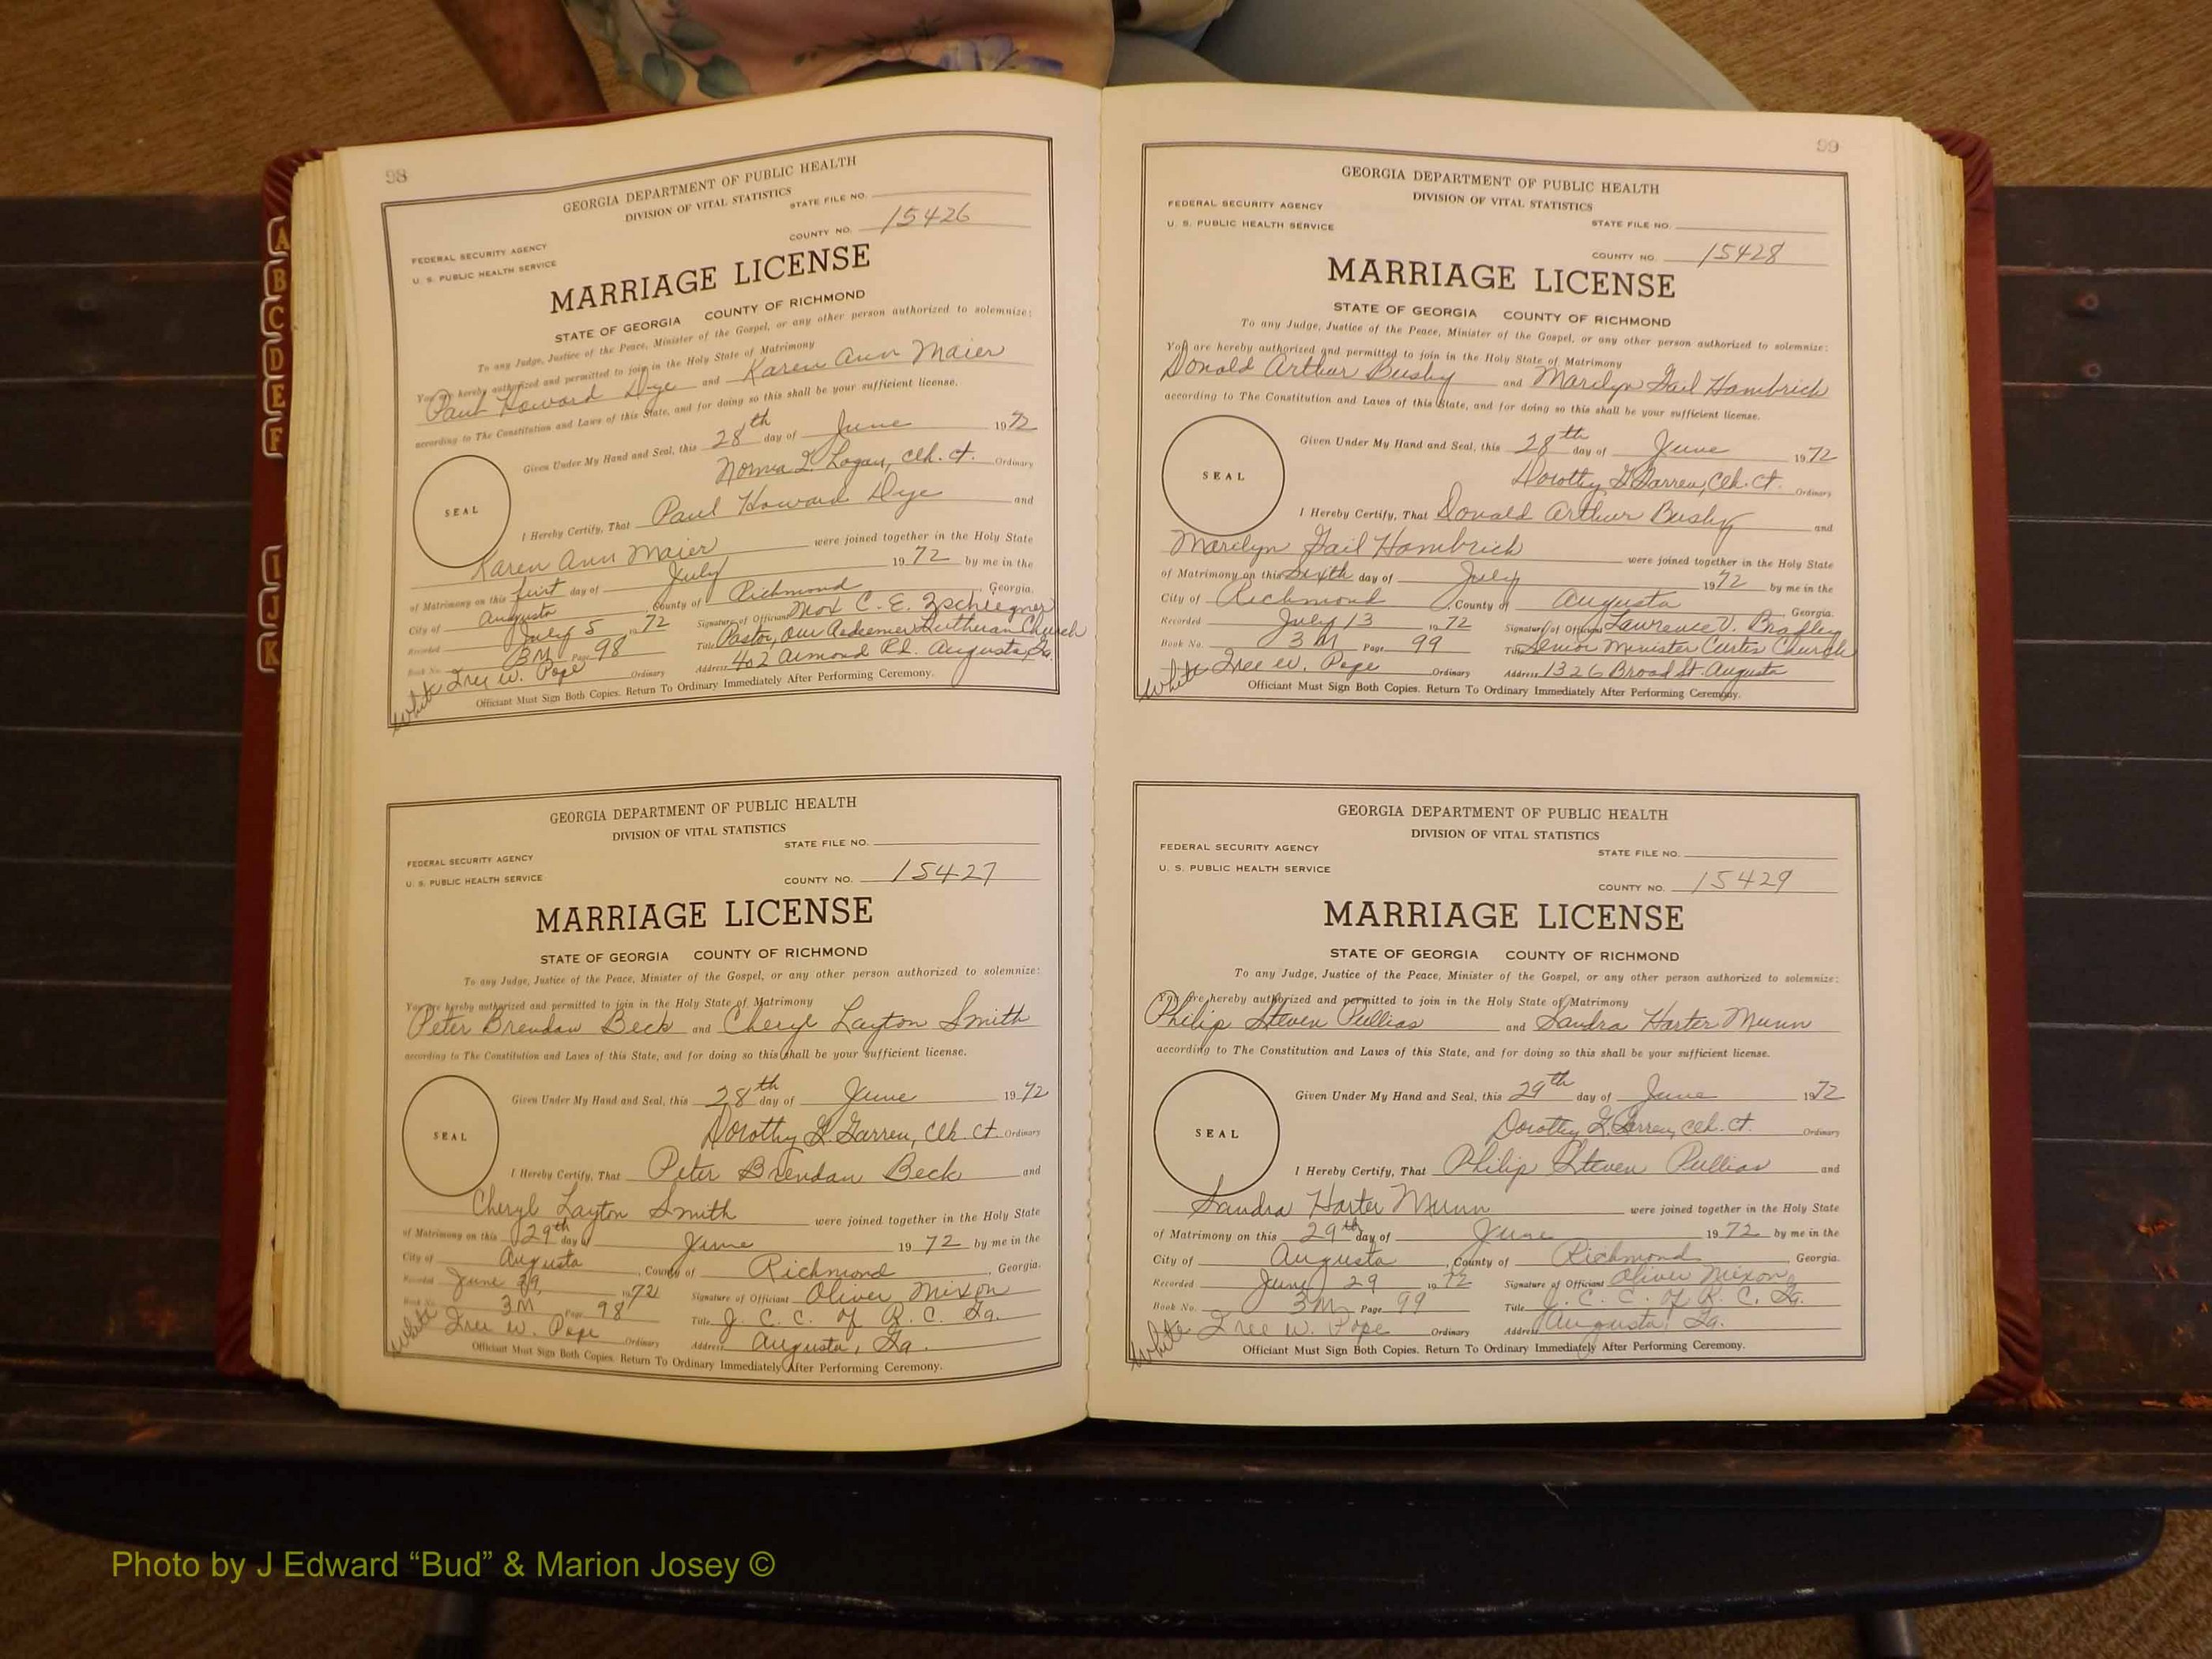 A
B
C
D
E
F
I
J
K
98
GEORGIA DEPARTMENT OF PUBLIC HEALTH
DIVISION OF VITAL STATISTICS
STATE FILE NO.
FEDERAL SECURITY AGENCY
U. S. PUBLIC HEALTH SERVICE
COUNTY NO. 15426
MARRIAGE LICENSE
STATE OF GEORGIA COUNTY OF RICHMOND
To any Judge, Justice of the Peace, Minister of the Gospel, or any other person authorized to solemnize:
You are hereby authorized and permitted to join in the Holy State of Matrimony
Paul Howard Dye and Karen Ann Maier
according to The Constitution and Laws of this State, and for doing so this shall be your sufficient license.
Given Under My Hand and Seal, this 28th day of June 1972
Logan, Clk. Ct. Ordinary
SEAL
I Hereby Certify, That Paul Howard Dye and
Karen Ann Maier were joined together in the Holy State
of Matrimony on this first day of July 1972 by me in the
City of Augusta, County of Richmond, Georgia.
Recorded July 5 1972 Signature of Officiant C. E.
Book No. 3M Page 98 Title Pastor, Our Redeemer Lutheran Church
W. Pope Ordinary Address 402 Aumond Rd. Augusta, Ga.
White
Officiant Must Sign Both Copies. Return To Ordinary Immediately After Performing Ceremony.
GEORGIA DEPARTMENT OF PUBLIC HEALTH
DIVISION OF VITAL STATISTICS
STATE FILE NO.
FEDERAL SECURITY AGENCY
U. S. PUBLIC HEALTH SERVICE
COUNTY NO. 15427
MARRIAGE LICENSE
STATE OF GEORGIA COUNTY OF RICHMOND
To any Judge, Justice of the Peace, Minister of the Gospel, or any other person authorized to solemnize:
You are hereby authorized and permitted to join in the Holy State of Matrimony
Peter Brendan Beck and Cheryl Layton Smith
according to The Constitution and Laws of this State, and for doing so this shall be your sufficient license.
Given Under My Hand and Seal, this 28th day of June 1972
Dorothy G. Garren, Clk. Ct. Ordinary
SEAL
I Hereby Certify, That Peter Brendan Beck and
Cheryl Layton Smith were joined together in the Holy State
of Matrimony on this 29th day of June 1972 by me in the
City of Augusta, County of Richmond, Georgia.
Recorded June 29, 1972 Signature of Officiant Oliver Mixon
Book No. 3M Page 98 Title J. C. C. of R. C. Ga.
W. Pope Ordinary Address Augusta, Ga.
White
Officiant Must Sign Both Copies. Return To Ordinary Immediately After Performing Ceremony.
99
GEORGIA DEPARTMENT OF PUBLIC HEALTH
DIVISION OF VITAL STATISTICS
FEDERAL SECURITY AGENCY
U. S. PUBLIC HEALTH SERVICE
STATE FILE NO.
COUNTY NO. 15428
MARRIAGE LICENSE
STATE OF GEORGIA COUNTY OF RICHMOND
To any Judge, Justice of the Peace, Minister of the Gospel, or any other person authorized to solemnize:
You are hereby authorized and permitted to join in the Holy State of Matrimony
Donald Arthur Busby and Marilyn Gail Hambrick
according to The Constitution and Laws of this State, and for doing so this shall be your sufficient license.
Given Under My Hand and Seal, this 28th day of June 1972
Dorothy G. Garren, Clk. Ct. Ordinary
SEAL
I Hereby Certify, That Donald Arthur Busby and
Marilyn Gail Hambrick were joined together in the Holy State
of Matrimony on this Sixth day of July 1972 by me in the
City of Richmond, County of Augusta Georgia.
Recorded July 13 1972 Signature of Officiant Lawrence V. Bradley
Book No. 3M Page 99 Title Senior Minister Curtis Church
W. Pope Ordinary Address 1326 Broad St. Augusta
White
Officiant Must Sign Both Copies. Return To Ordinary Immediately After Performing Ceremony.
GEORGIA DEPARTMENT OF PUBLIC HEALTH
DIVISION OF VITAL STATISTICS
FEDERAL SECURITY AGENCY
STATE FILE NO.
U. S. PUBLIC HEALTH SERVICE
COUNTY NO. 15429
MARRIAGE LICENSE
STATE OF GEORGIA COUNTY OF RICHMOND
To any Judge, Justice of the Peace, Minister of the Gospel, or any other person authorized to solemnize:
You are hereby authorized and permitted to join in the Holy State of Matrimony
Philip Steven Pullias and Sandra Harter Munn
according to The Constitution and Laws of this State, and for doing so this shall be your sufficient license.
Given Under My Hand and Seal, this 29th day of June 1972
Dorothy G. Garren, Clk. Ct. Ordinary
SEAL
I Hereby Certify, That Philip Steven Pullias and
Sandra Harter Munn were joined together in the Holy State
of Matrimony on this 29th day of June 1972 by me in the
City of Augusta, County of Richmond Georgia.
Recorded June 29 1972 Signature of Officiant Oliver Mixon
Book No. 3M Page 99 Title J. C. C. of R. C. Ga.
W. Pope Ordinary Address Augusta, Ga.
White
Officiant Must Sign Both Copies. Return To Ordinary Immediately After Performing Ceremony.
Photo by J Edward “Bud” & Marion Josey ©